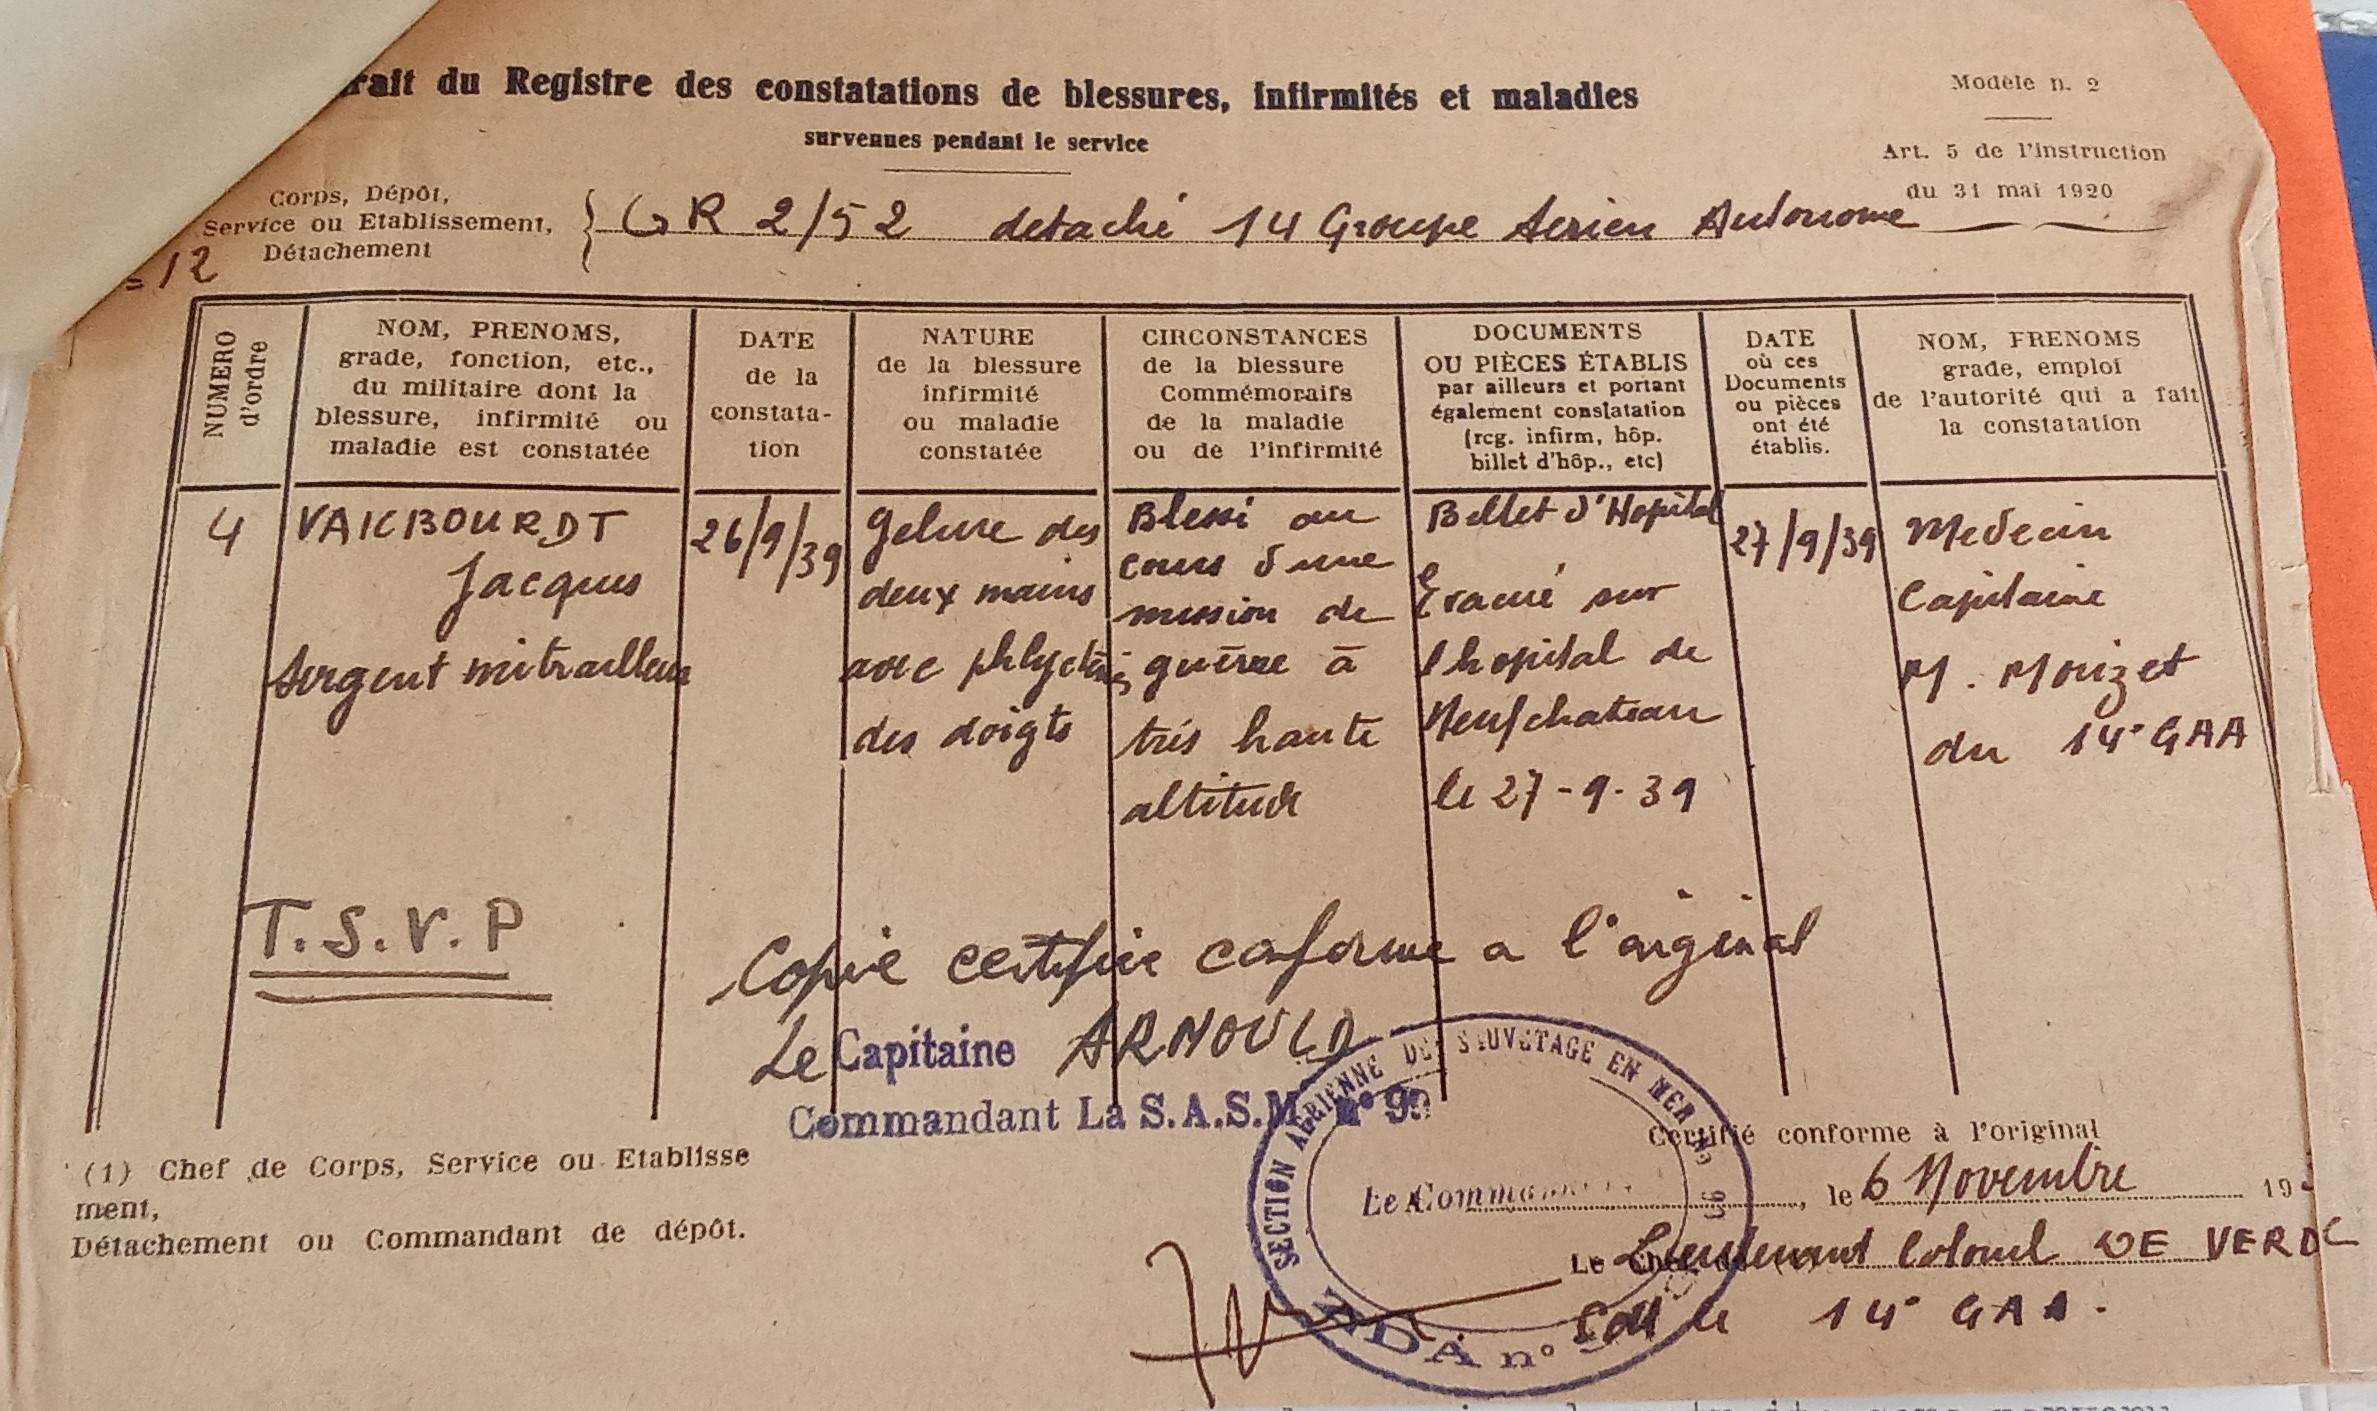 rait du Registre des constatations de blessures, infirmités et maladies
survenues pendant le service
Modèle n. 2
Art. 5 de l'instruction
du 31 mai 1920
Corps, Dépôt,
Service ou Etablissement,
Détachement
GR 2/52 detaché 14 Groupe Aerien Autonome
= 12
NUMERO
d'ordre
NOM, PRENOMS,
grade, fonction, etc.,
du militaire dont la
blessure, infirmité ou
maladie est constatée
DATE
de la
constata-
tion
NATURE
de la blessure
infirmité
ou maladie
constatée
CIRCONSTANCES
de la blessure
Commémoraifs
de la maladie
ou de l'infirmité
DOCUMENTS
OU PIÈCES ÉTABLIS
par ailleurs et portant
également constatation
(reg. infirm, hôp.
billet d'hôp., etc)
DATE
où ces
Documents
ou pièces
ont été
établis.
NOM, PRENOMS
grade, emploi
de l'autorité qui a fait
la constatation
4
VAKBOURDT
Jacques
Sergent mitrailleur
26/9/39
Gelure des
deux mains
avec phlyctènes
des doigts
Blessé au
cours d'une
mission de
guerre à
très haute
altitude
Billet d'Hopital
Evacué sur
l'hopital de
Neufchateau
le 27-9-39
27/9/39
Medecin
Capitaine
M. Morizet
du 14° GAA
T.S.V.P
Copie certifiée conforme a l'original
Le Capitaine ARNOULD
Commandant La S.A.S.M. n° 99
SECTION AERIENNE DE SAUVETAGE EN MER No 99
Le Comma
Certifié conforme à l'original
, le 6 Novembre 19
Le Lieutenant Colonel DE VERD
Cdt le 14° GAA.
(1) Chef de Corps, Service ou Etablisse
ment,
Détachement ou Commandant de dépôt.